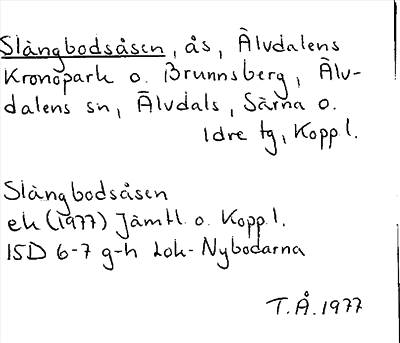 Slångbodsåsen, ås, Älvdalens
Kronopark o. Brunnsberg, Älv-
dalens sn, Älvdals, Särna o.
Idre tg, Koppl.
Slångbodsåsen
ek (1977) Jämtl. o. Koppl.
15D 6-7 g-h Lok-Nybodarna
T.Å. 1977